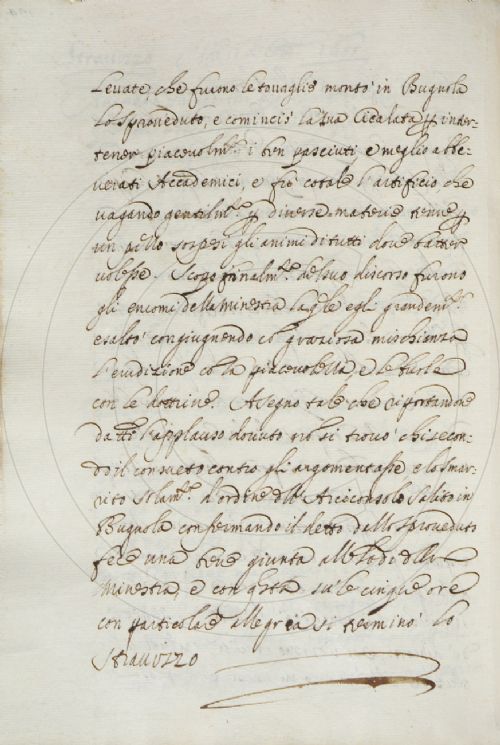 Levate, che furono le tovaglie montò in Bugnola
Lo Sproveduto, e cominciò la sua Cicalata p inter-
tener piacevolm.e i ben pasciuti, e meglio abbe-
verati Accademici, e fù cotale l'artificio che
vagando gentilm.e p diverse materie tenne p
un pezzo sospesi gli animi di tutti dove batter
volesse. Scopo finalm.e del suo discorso furono
gli encomi della minestra la qle egli grandem.e
esaltò congiugnendo cõ graziosa mischianza
l'erudizione cõ la piacevolezza, e le burle
con le dottrine. A segno tale che riportandone
da tti l'applauso dovuto nõ si trovò chi secon-
do il consueto contro gli argomentasse e lo Smar-
rito Solam.e d'ordine dll' Arciconsolo Salito in
Bugnola confermando il detto dallo Sproveduto
fece una breve giunta alle lodi della
Minestra, e con qsta su le cinque ore
con particolare allegria si terminò lo
Stravizzo